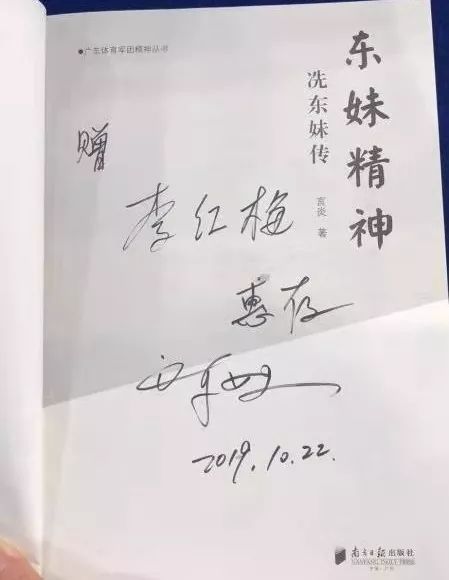 ●广东体育军团精神丛书
东妹精神
冼东妹传
言炎 著
赠
李红梅
惠存
2019.10.22.
南方日报出版社
NANFANG DAILY PRESS
中国·广州